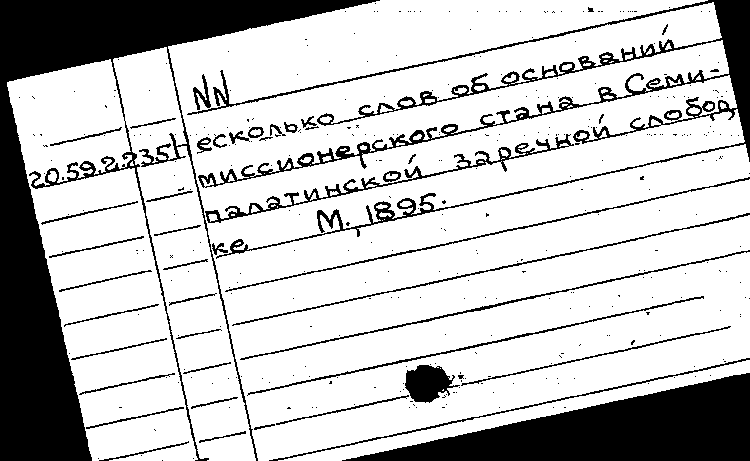 NN
20.59.2.235 Несколько слов об оснований
миссионерского стана в Семи-
палатинской заречной слобод
ке М., 1895.